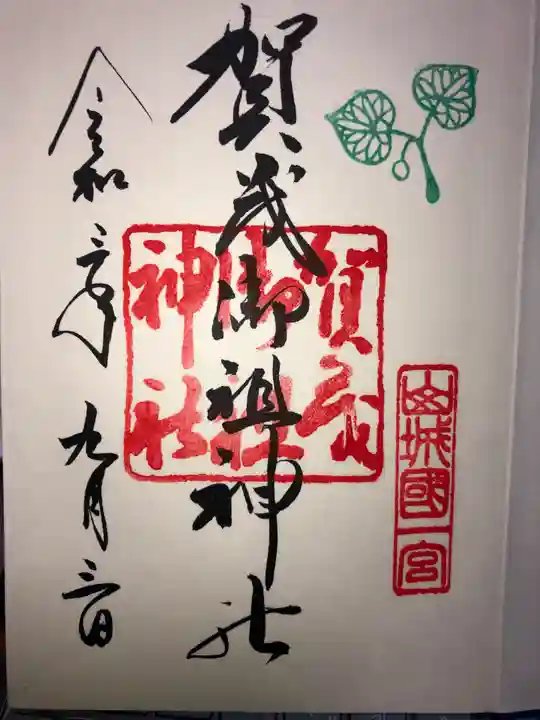 山城國一宮
賀茂御祖神社
賀茂
御祖
神社
令和三年九月三日